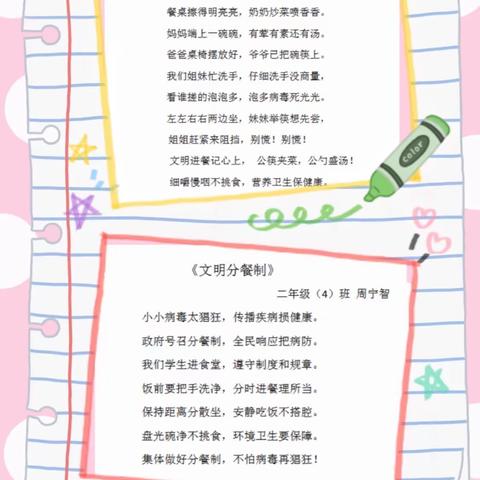 餐桌擦得明亮亮，奶奶炒菜喷香香。
妈妈端上一碗碗，有荤有素还有汤。
爸爸桌椅摆放好，爷爷己把碗筷上。
我们姐妹忙洗手，仔细洗手没商量，
看谁搓的泡泡多，泡多病毒死光光。
左左右右两边坐，妹妹举筷想先尝，
姐姐赶紧来阻挡，别慌！别慌！
文明进餐记心上， 公筷夹菜，公勺盛汤！
细嚼慢咽不挑食，营养卫生保健康。
color
《文明分餐制》
二年级（4）班 周宁智
小小病毒太猖狂，传播疾病损健康。
政府号召分餐制，全民响应把病防。
我们学生进食堂，遵守制度和规章。
饭前要把手洗净，分时进餐理所当。
保持距离分散坐，安静吃饭不搭腔。
盘光碗净不挑食，环境卫生要保障。
集体做好分餐制，不怕病毒再猖狂！